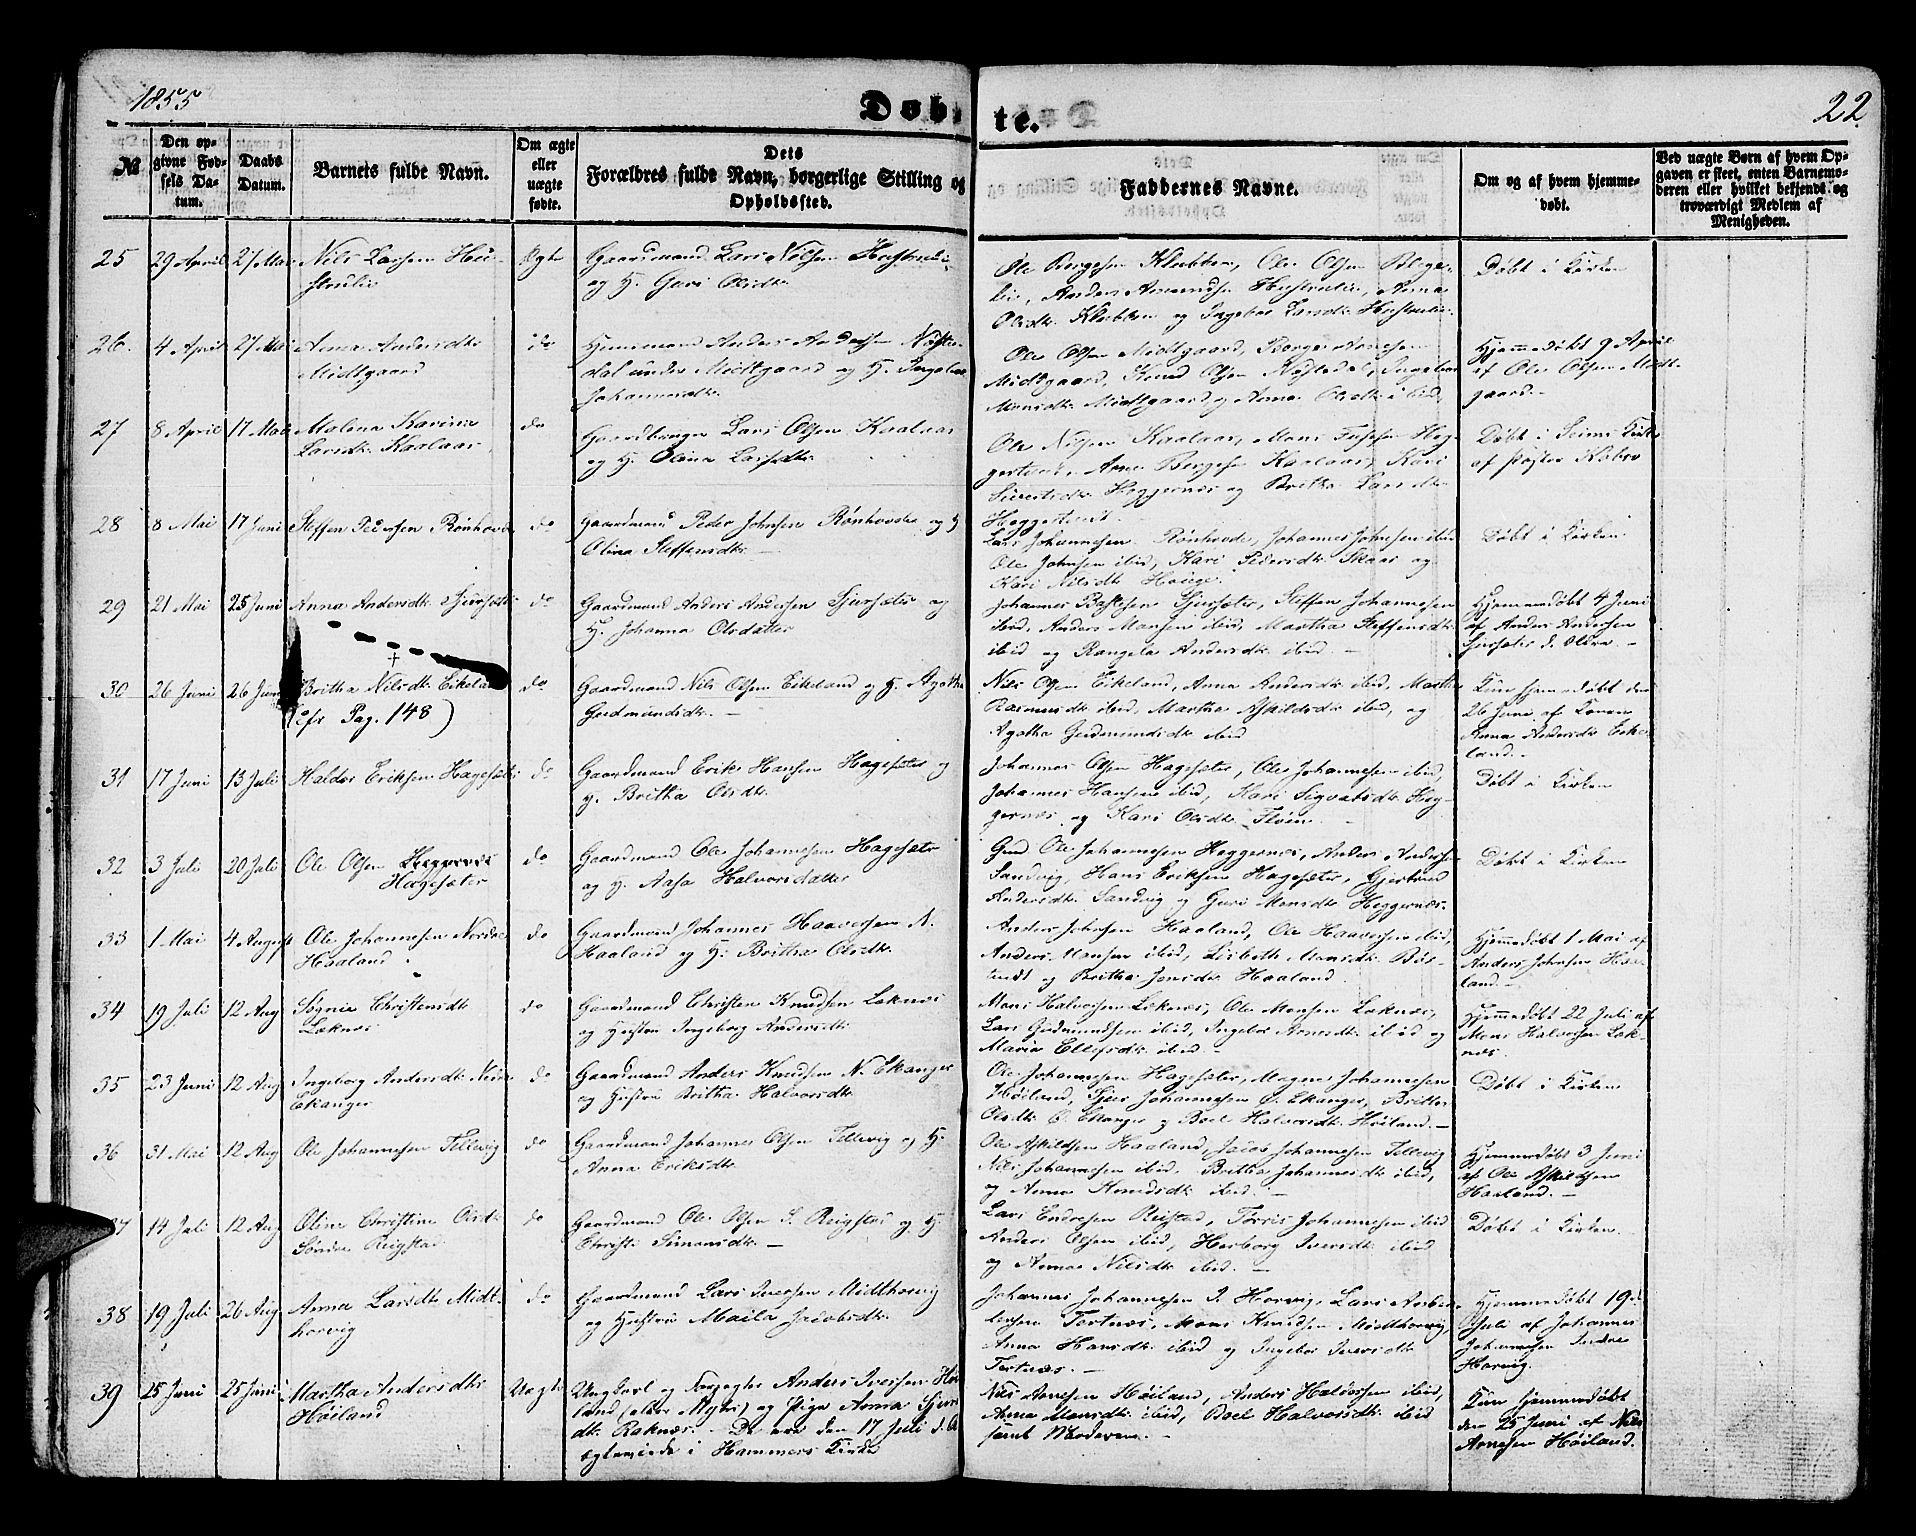 1855
Døbte.
22.
№
Den opgivne Fødsels Datum.
Daabs Datum.
Barnets fulde Navn.
Om ægte eller uægte fødte.
Dets Forældres fulde Navn, borgerlige Stilling og Opholdssted.
Faddernes Navne.
Om og af hvem hjemmedøbt.
Ved uægte Børn af hvem Opgaven er skeet, enten Barnemoderen eller hvilket bekjendt og troværdigt Medlem af Menigheden.
25 29 April 27 Mai Nils Larsen Ægte Gaardmand Lars Nilsen
og H. Guri Olsdtr
Ole Borgesen Klubben, Ole Olsen
Anders Amundsen Anna
Olsdtr Klubben og Ingebor Larsdtr
Døbt i Kirken
26. 4 April 27 Mai Anna Andersdtr
Midtgaard
do Huusmand Anders Andersen
dal under Midtgaard og H. Ingebor
Johannesdtr
Ole Olsen Midtgaard,
Midtgaard, Knud Olsen Ingebor
Monsdtr Midtgaard og Anna Olsdtr ibid,
Hjemmedøbt 9 April
af Ole Olsen Midt-
gaard.-
27 8 April 17 Mai Malena Karina
Larsdtr Kaalaas
do Lars Olsen Kaalaas
og H. Olina Larsdtr
Ole Nilsen Kaalaas, Mons
Anna Borgesen Kaalaas, Kari
Sivertsdtr Heggernes og Britha Larsdtr
Døbt i Seims Kirke
af
28 8 Mai 17 Juni Steffen Pedersen Rønhovde
do Gaardmand Peder Johnsen Rønhovde og H
Olina Steffensdtr -
Lars Johannesen Rønhovde, Johannes Johnsen ibid
Ole Johnsen ibid, Kari Pedersdtr Skaar og
Kari Nilsdtr Hauge.
Døbt i Kirken
29 21 Mai 25 Juni Anna Andersdtr
do Gaardmand Anders Andersen og
H. Johanna Olsdatter
Johannes Steffen Johannesen
ibid, Anders Monsen ibid, Martha Steffensdtr
ibid og Rangela Andersdtr ibid.
Hjemmedøbt 4 Juni
af Anders Andersen
30 26 Juni 26 Juni Britha Nilsdtr Eikeland
(cfr Pag. 148)
do Gaardmand Nils Olsen Eikeland og H. Agatha
Gudmundsdtr. -
Nils Olsen Eikeland, Anna Andersdtr ibid, Martha
Rasmusdtr ibid, Martha Askildsdtr ibid, og
Agatha Gudmundsdtr ibid
Kun hjemmedøbt den
26 Juni af Konen
Anna Andersdtr Eike-
land. -
31 17 Juni 13 Juli Haldor Eriksen Hagesæter
do Gaardmand Erik Hansen Hagesæter og
H. Britha Olsdtr
Johannes Olsen Hagesæter, Ole Johannesen ibid,
Johannes Hansen ibid, Kari Sigvatsdtr Heg-
gernes og Kari Olsdtr
Døbt i Kirken
32 3 Juli 20 Juli Ole Olsen Heggernes
Hagesæter
do Gaardmand Ole Johannesen Hagesæter
og H. Aasa Halvorsdatter
Ole Johannesen Heggernes, Anders Andersen
Sandvig, Hans Eriksen Hagesæter, Gjertrud
Andersdtr Sandvig og Guri Monsdtr Heggernes.
Døbt i Kirken
33 1 Mai 4 August Ole Johannesen Nordre
Haaland
do Gaardmand Johannes Haaversen N.
Haaland og H. Britha Olsdtr
Anders Johnsen Haaland, Ole Haaversen ibid,
Anders Monsen ibid, Lisbeth Monsdtr
og Britha Jensdtr Haaland.
Hjemmedøbt 1 Mai af
Anders Johnsen Haa-
land. -
34 19 Juli 12 Aug Christensdtr
Leknes
do Gaardmand Christen Knudsen Leknes
og Hustru Ingeborg Andersdtr
Mons Halvorsen Leknes, Ole Monsen Leknes,
Lars Gudmundsen ibid, Ingebor Arnesdtr ibid og
Maria Ellefsdtr ibid. -
Hjemmedøbt 22 Juli af
Mons Halvorsen Lek-
nes.
35 23 Juni 12 Aug Ingeborg Andersdtr Nedre
Ekanger
do Gaardmand Anders Knudsen N. Ekanger
og Hustru Britha Halvorsdtr
Ole Johannesen Hagesæter, Magne Johannesen
Høiland, Johannesen Ø. Ekanger, Britha
Olsdtr Ø. Ekanger og Boel Halvorsdtr Høiland. -
Døbt i Kirken
36 31 Mai 12 Aug Ole Johannesen Tellevig
do Gaardmand Johannes Olsen Tellevig og H.
Anna Eriksdtr
Ole Askildsen Haaland, Jacob Johannesen Tellevig
Nils Johannesen ibid, Britha Johannesdtr ibid,
og Anna Knudsdtr ibid. -
Hjemmedøbt 3 Juni
af Ole Askildsen
Haaland. -
37 14 Juli 12 Aug Oline Christine Olsdtr
Søndre Reigstad
do Gaardmand Ole Olsen S. Reigstad og H.
Christi Simonsdtr. -
Lars Endresen Reistad, Torris Johannesen ibid
Anders Olsen ibid, Herborg Iversdtr ibid
og Anna Nilsdtr ibid. -
Døbt i Kirken.
38 19 Juli 26 Aug Anna Larsdtr Midt-
horvig
do Gaardmand Lars Iversen Midthorvig
og Hustru Maila Jacobsdtr
Johannes Johannesen I. Horvig, Lars Anders
Tertnes, Mons Knudsen Midthorvig,
Anna Hansdtr ibid og Ingebor Iversdtr
Tertnes. -
Hjemmedøbt 19de
Juli af Johannes
Johannesen Indre
Horvig.
39 25 Juni 25 Juni Martha Andersdtr
Høiland
Uægte Ungkarl og Anders Iversen Høi-
land (eller Myhr) og Pige Anna
dtr Raknes. - De ere den 17 Juli d. A
ægteviede i Hammers Kirke
Nils Arnesen Høiland, Anders Halvorsen ibid,
Anna Monsdtr ibid, Boel Halvorsdtr ibid
samt Moderen. -
Kun hjemmedøbt
den 25 Juni af Nils
Arnesen Høiland.